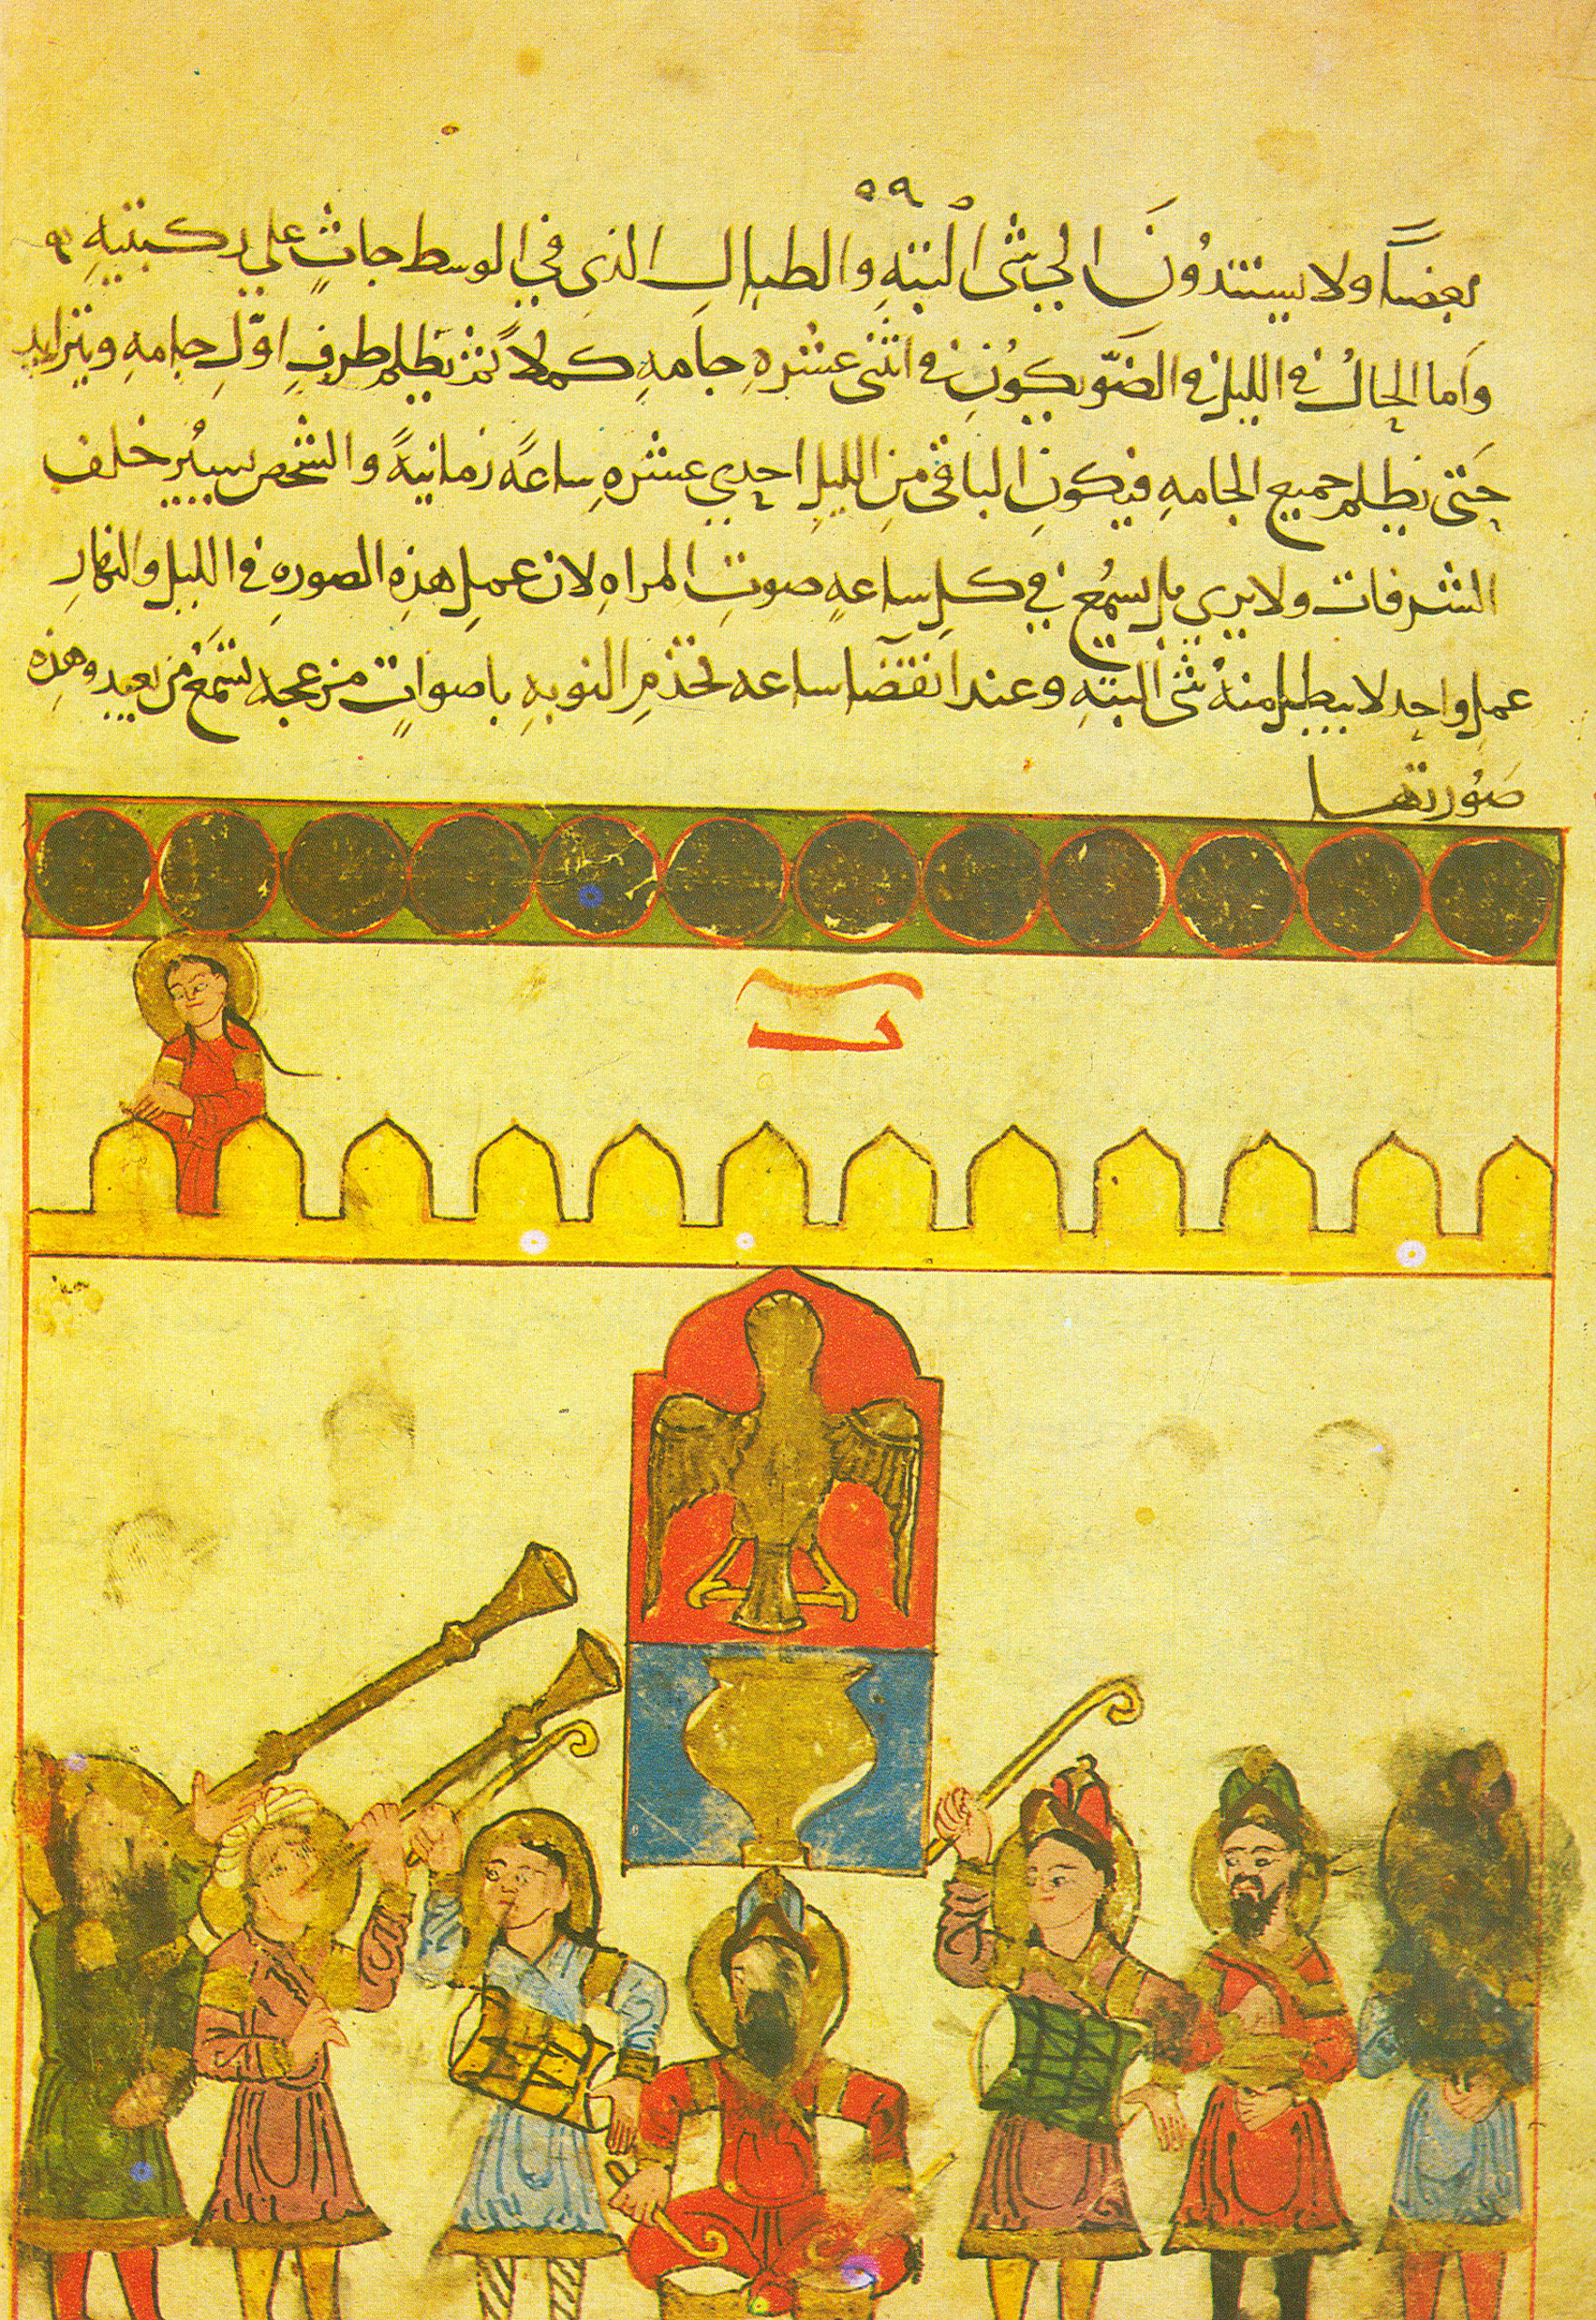 ٥٩
بعضاً ولا يستندون الى شى البته والطبال الذى في الوسط جاثٍ على ركبتيهِ
واما الحالُ في الليل في الضوّ يكون في اثنتى عشره جامهٍ كملاً ثم يظلم طرف اوّل جامهِ ويتزايد
حَتى يظلم جميع الجامهِ فيكون الباقى من الليلِ احدي عشرهِ ساعهً زمانيهً والشخص يسيُر خلف
الشرفات ولا يرى بل يسمُع في كل ساعهٍ صوت المراهِ لان عمل هذهِ الصورهِ في الليل والنهارِ
عمل واحد لا يبطل منهُ شى البتهِ وعند انقضآ ساعه تخدم النوبهِ باصواتٍ مزعجه تسمع من بعيد وهذه
صُورتها